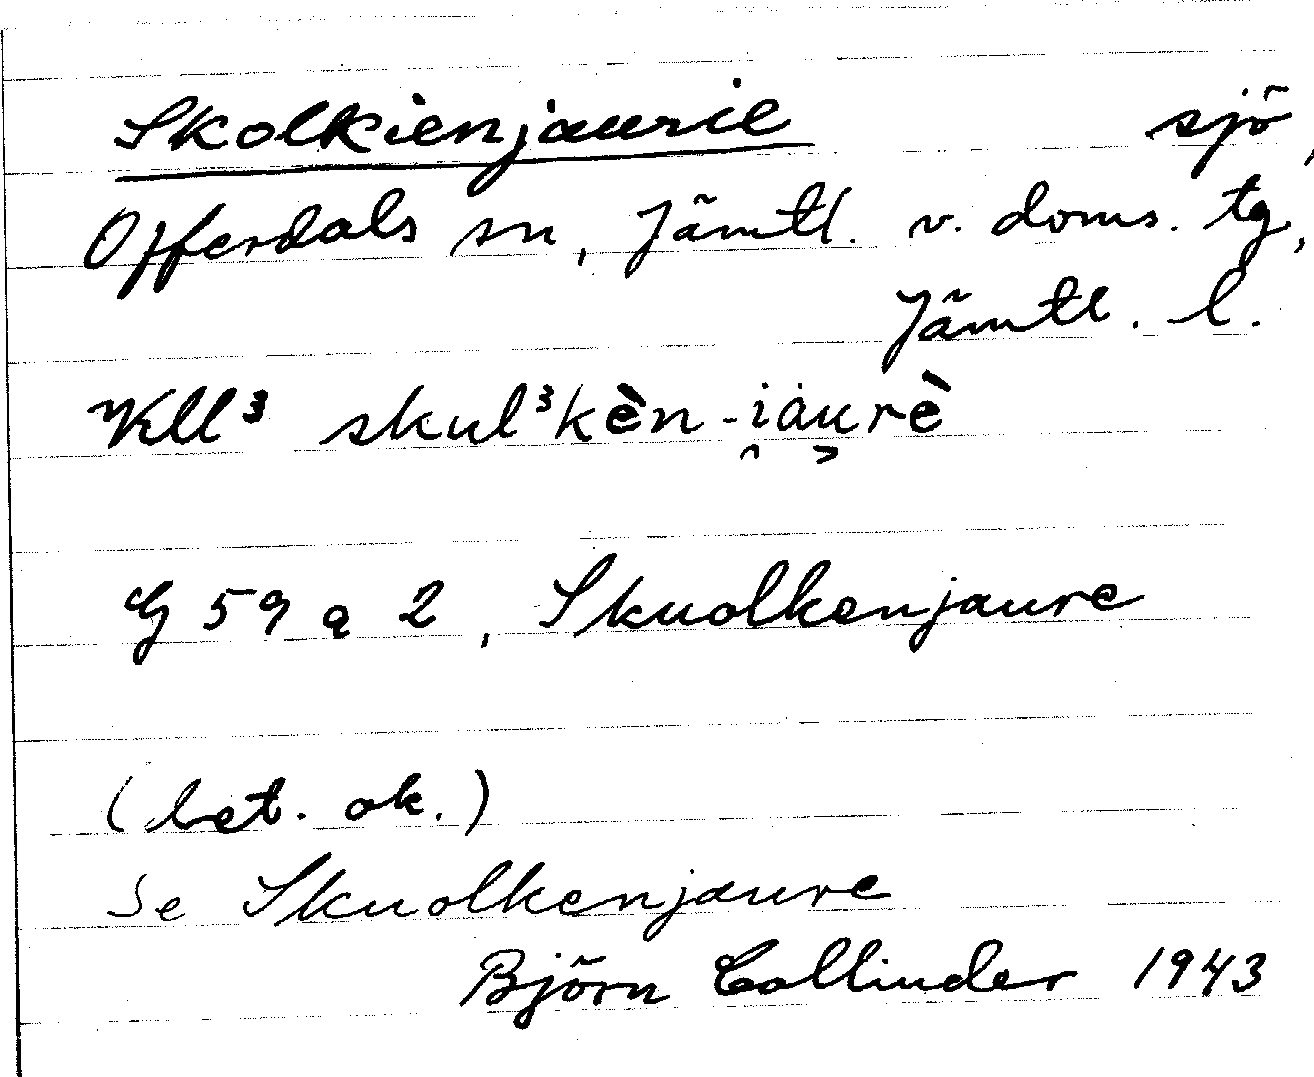 Skolkienjaurie sjö,
Offerdals sn, Jämtl. v. doms. tg,
Jämtl. l.
Kll³ skul³kèn-i̯ȧu̯rè
G 59 a 2, Skuolkenjaure
(bet. ok.)
Se Skuolkenjaure
Björn Collinder 1943